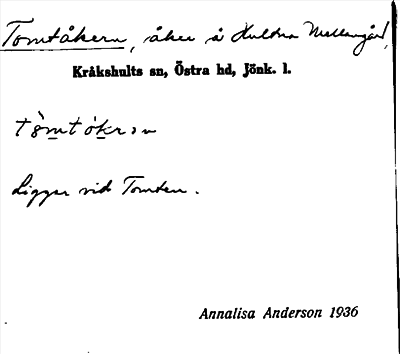 Tomtåkern, åker å Hultna Mellangård,
Kråkshults sn, Östra hd, Jönk. l.
Ligger vid Tomten.
Annalisa Anderson 1936